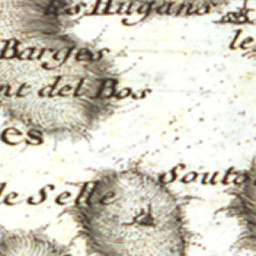 les Hugans
le
Barges
nt del Bos
es
Souto
de Selle